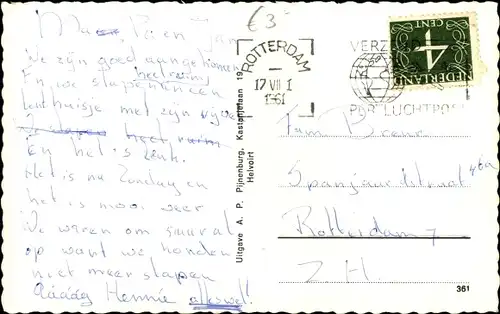 €3-
Ma
We zijn goed aangekomen
En we slapen in een
heel ruim
tenthuisje met zijn
heel ruim
En het is leuk.
Het is nu Zondag en
het is mooi weer
We waren om
op want we konden
niet meer slapen
Dááág Hennie alles wel!
Uitgave A. P. Pijnenburg, Kastanjelaan 19
Helvoirt
ROTTERDAM
17 VII 1
1961
VERZ
PER LUCHTPOS
4
CENT
NEDERLAND
Fam
Spanjaardstraat 46a
Rotterdam 7
Z.H.
361